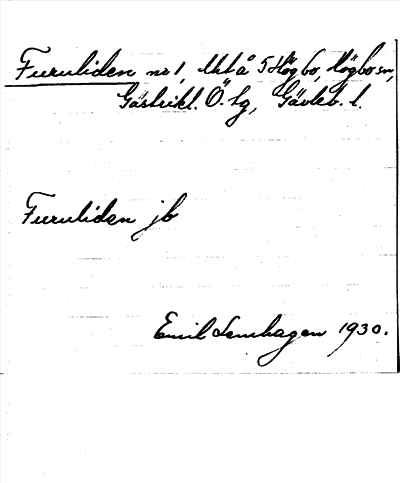 Furuliden nr 1, Utl å 5 Högbo, Högbo sn,
Gästrikl. Ö. tg, Gävleb. l.
Furuliden jb
Emil Lemhagen 1930.